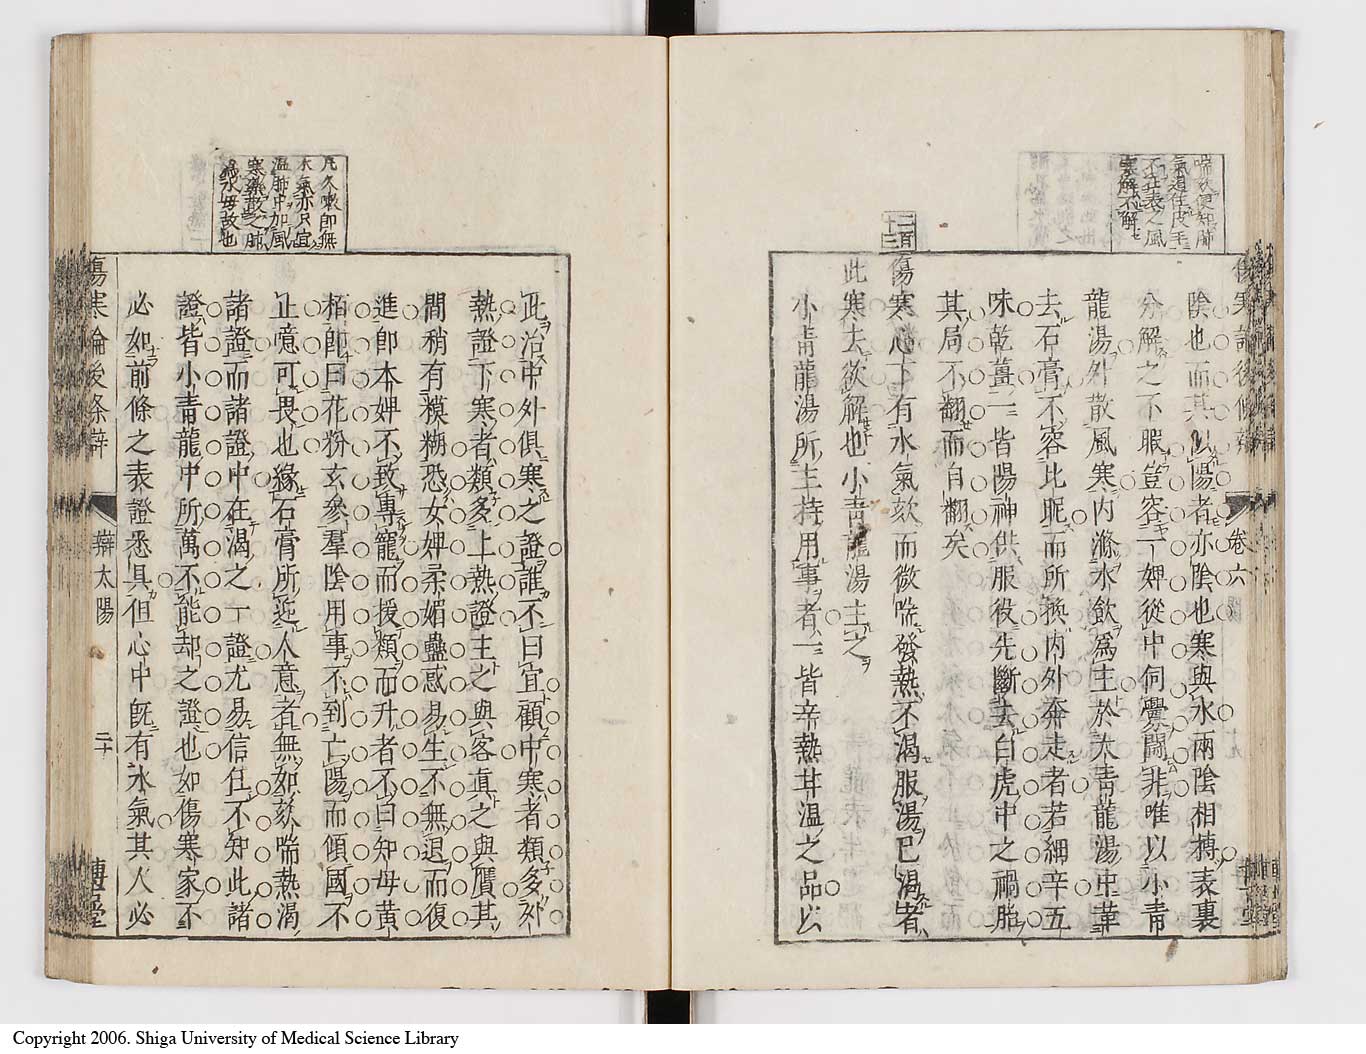 喘欬便知肺
氣道在皮毛
不在表之風
寒解不解
陰也而其以陽者亦陰也寒與水兩陰相搏表裏
分解之不暇豈容一婢從中伺釁鬪非唯以小青
龍湯外散風寒内滌水飲爲主於大青龍湯中革
去石膏不容比昵而所換内外奔走者若細辛五
味乾薑一皆陽神供服役先斷去白虎中之禍胎
其局不翻而自翻矣
二百
十三
傷寒心下有水氣欬而微喘發熱不渴服湯已渴者
此寒去欲解也小青龍湯主之
小青龍湯所主持用事者一皆辛熱甘温之品以
卷六
凡久嗽即無
水氣亦只宜
温肺中加風
寒藥散之肺
爲水母故也
此治中外俱寒之證誰不曰宜顧中寒者類多外
熱證下寒者類多上熱證主之與客真之與贋其
間稍有模糊恐女婢柔媚蠱惑易生不無退而復
進即本婢不致專寵而援類而升者不曰知母黄
栢即曰花粉玄參羣陰用事不到亡陽而傾國不
止噫可畏也緣石膏所逆人意者無如欬喘熱渴
諸證而諸證中在渴之一證尤易信任不知此諸
證皆小青龍中所萬不能却之證也如傷寒家不
必如前條之表證悉具但心中既有水氣其人必
傷寒論後條辯
辯太陽
二十
博古堂
Copyright 2006. Shiga University of Medical Science Library